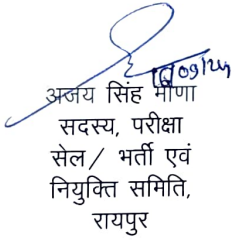 अजय सिंह मीणा
सदस्य, परीक्षा
सेल / भर्ती एवं
नियुक्ति समिति,
रायपुर